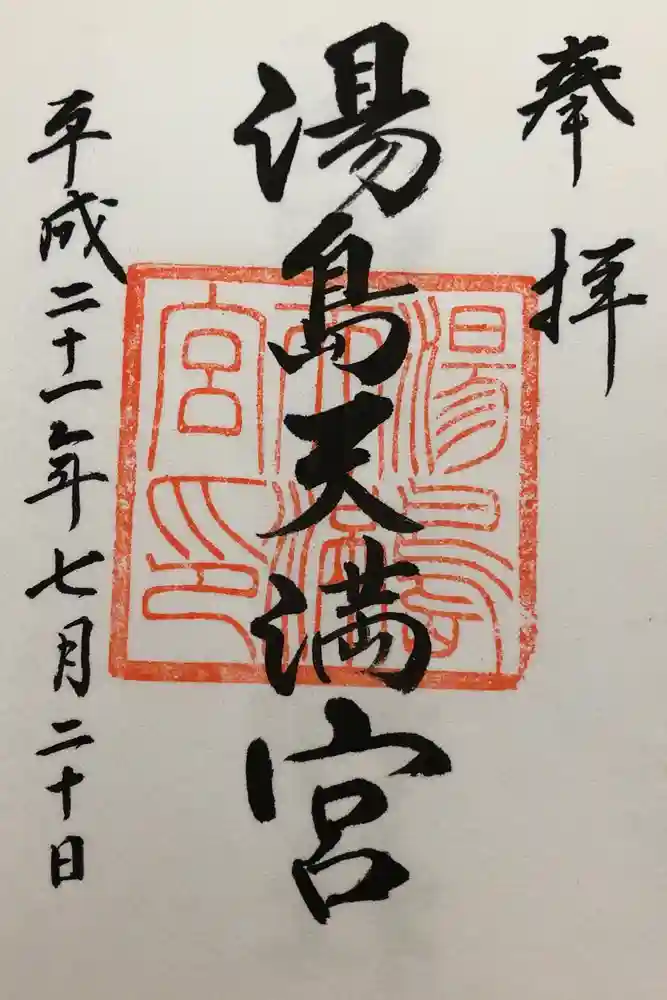 奉拝
湯島天満宮
平成二十一年七月二十日
湯島天満宮印